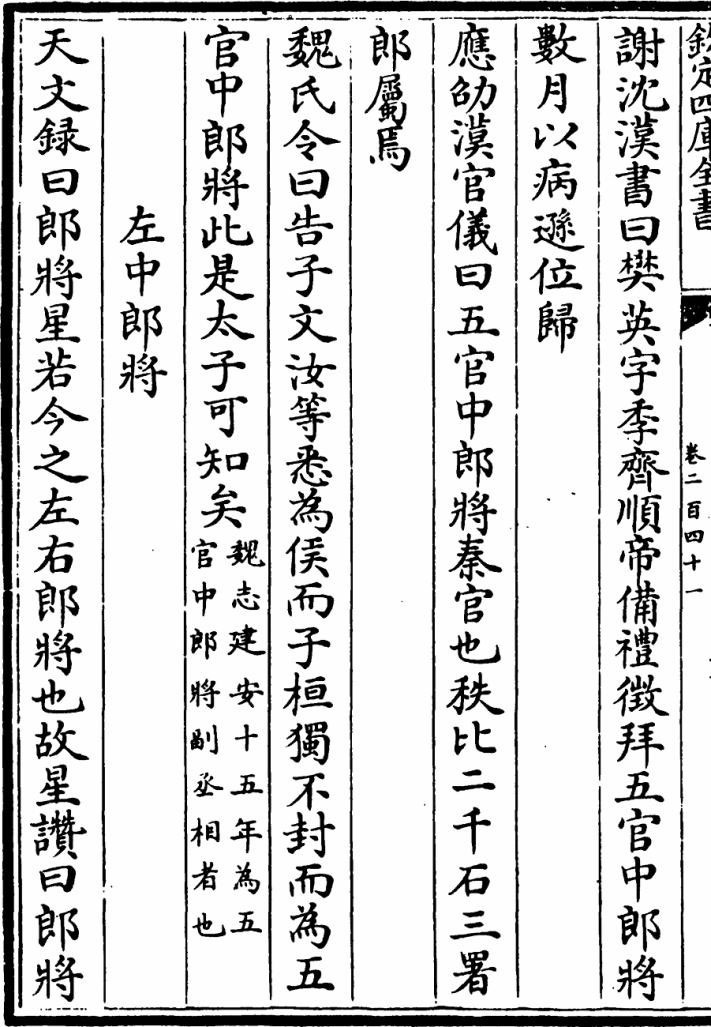 欽定四庫全書
卷二百四十一
謝沈漢書曰樊英字季齊順帝備禮徴拜五官中郎將
數月以病遜位歸
應劭漢官儀曰五官中郎將秦官也秩比二千石三署
郎屬焉
魏氏令曰告子文汝等悉為侯而子桓獨不封而為五
官中郎將此是太子可知矣魏志建安十五年為五
官中郎將副丞相者也
左中郎將
天文録曰郎將星若今之左右郎將也故星讚曰郎將